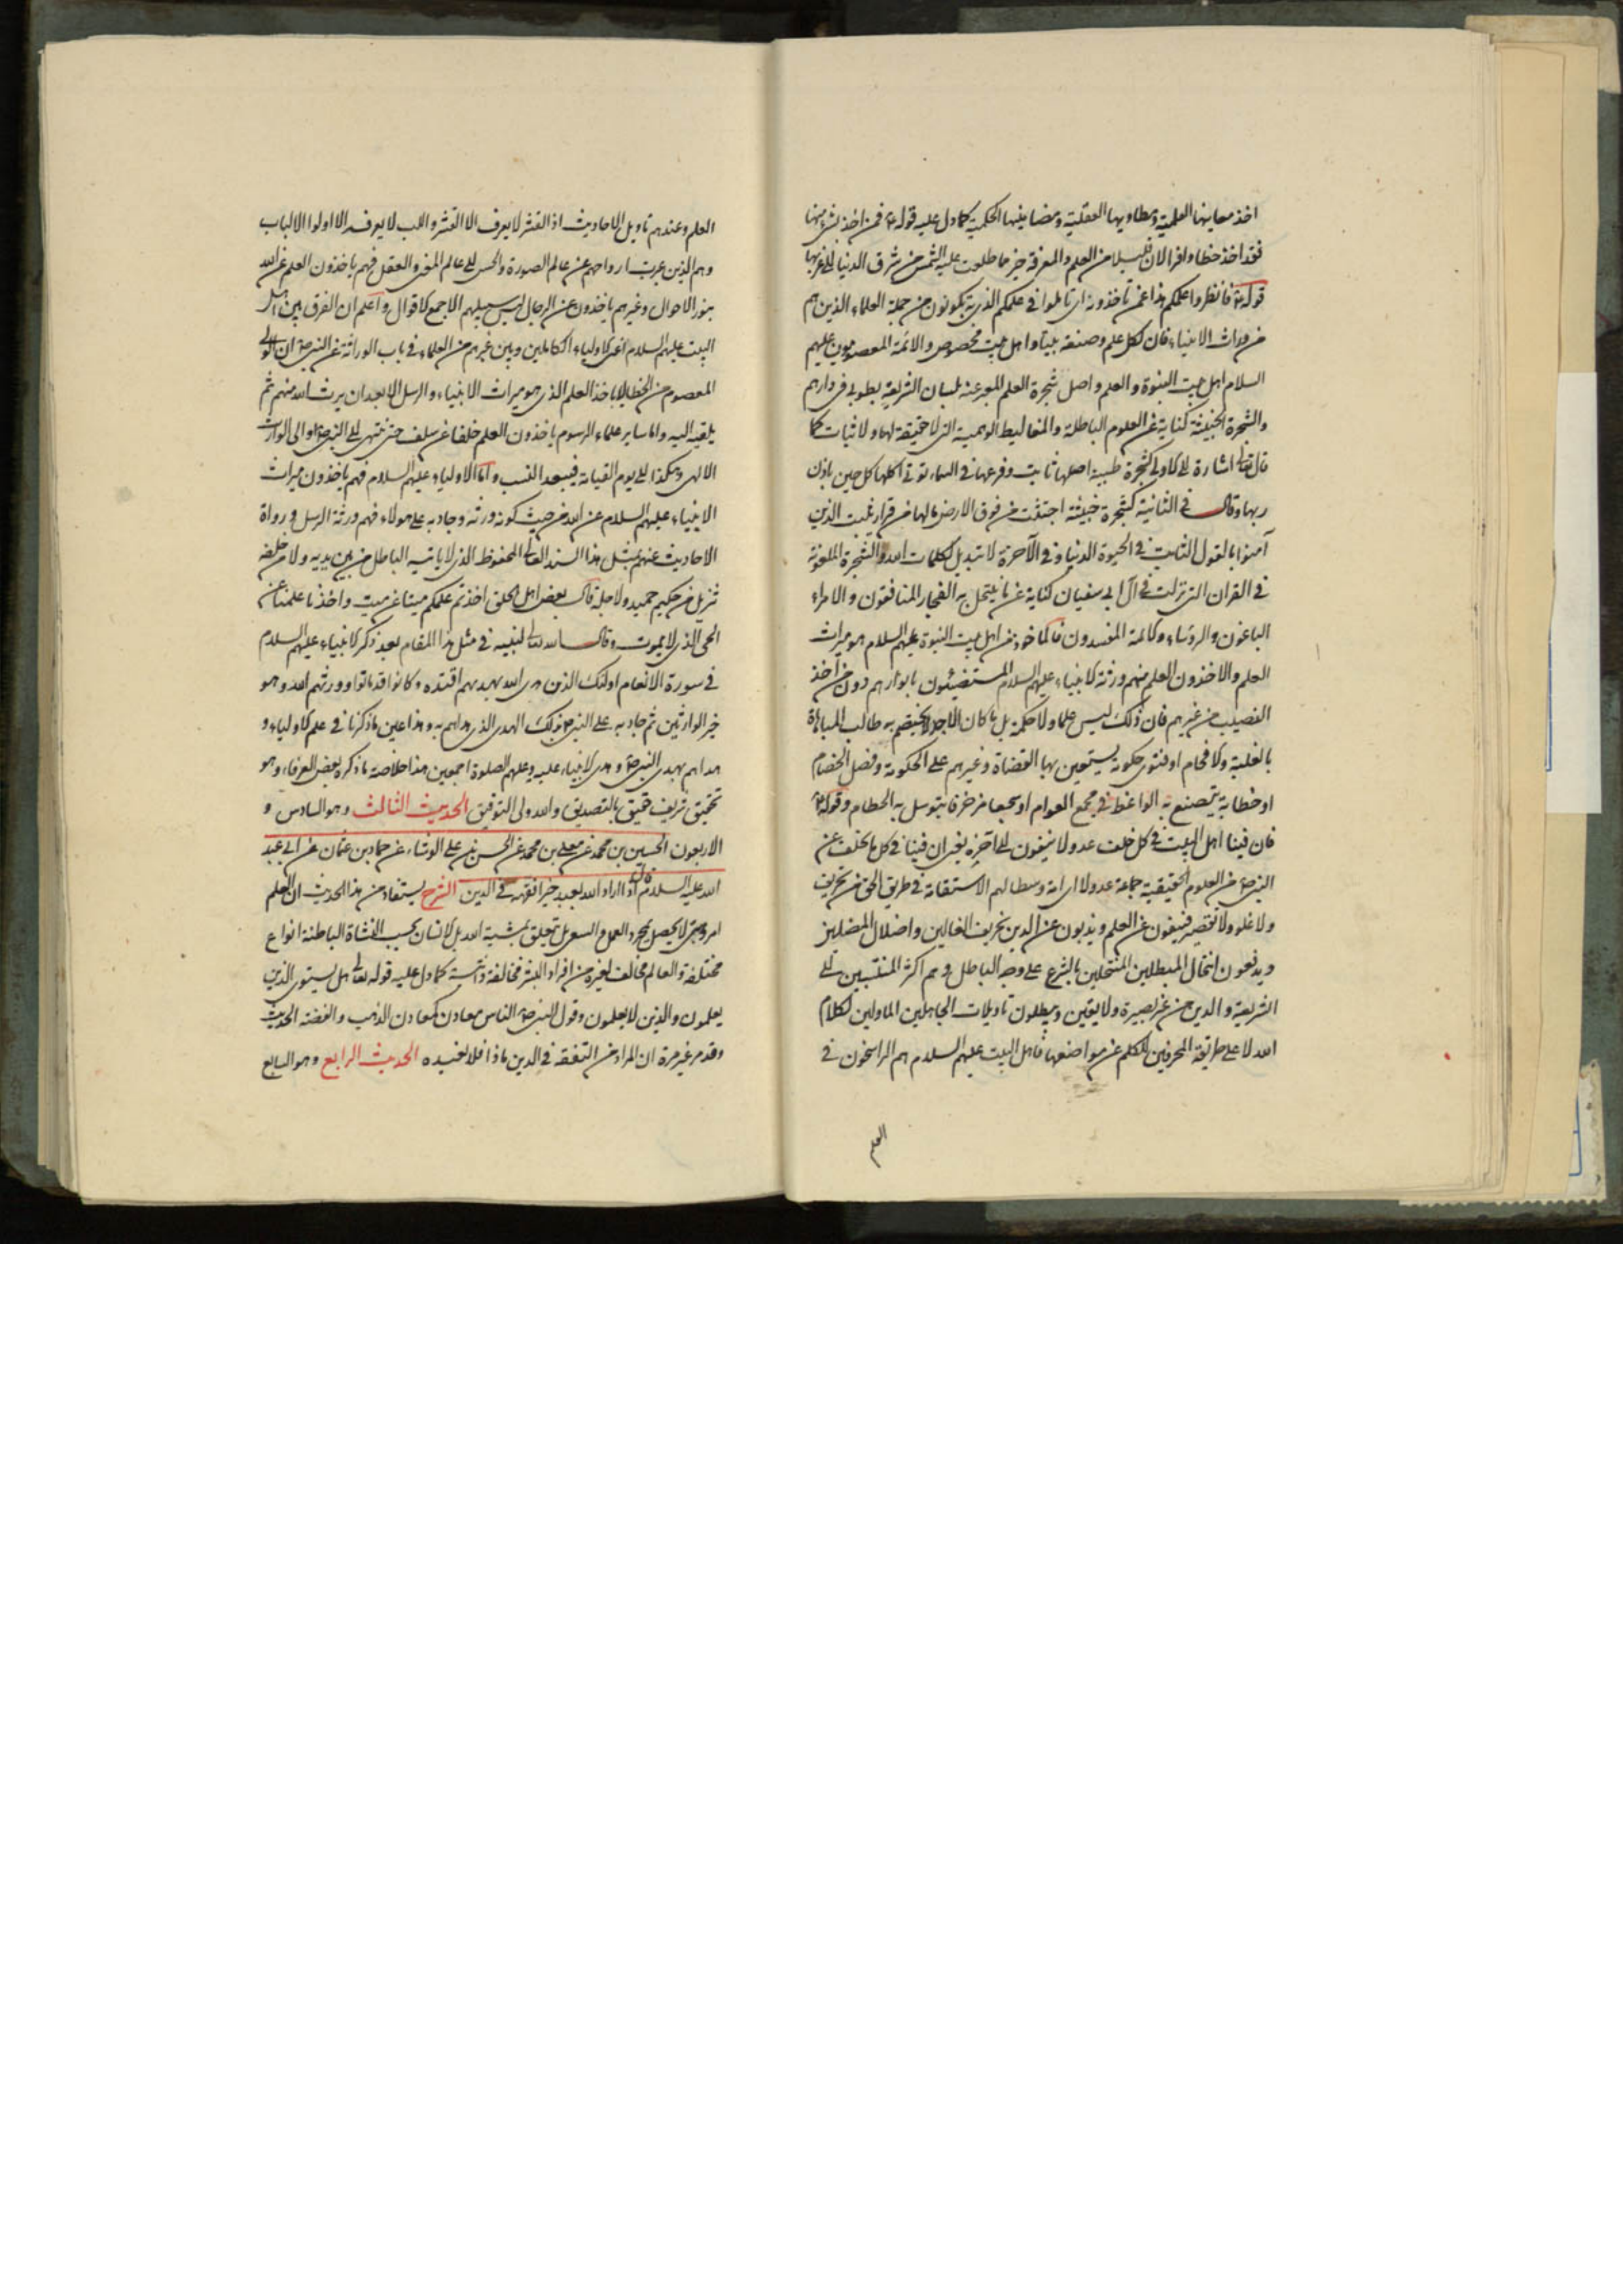 اخذ معانيها العلمية ومطاويها العقلية ومضامينها الحكمية كما دل عليه قوله ع فمن اخذ بشئ منها
فقد اخذ حظا وافرا لان قليلا من العلم والمعرفة خير مما طلعت عليه الشمس من شرق الدنيا الى غربها
قوله ع فانظروا علمكم هذا عمن تأخذونه اى تأملوا فى علمكم الذى به تكونون من جملة العلماء الذين هم
من وراث الانبياء فان لكل علم وصنعة بيتا واهل بيت مخصوص والائمة المعصومون عليهم
السلام اهل بيت النبوة والعلم واصل شجرة العلم المعبر عنه بلسان الشريعة بطوبى فى دارهم
والشجرة الخبيثة كناية عن العلوم الباطلة والمغاليط الوهمية التى لا حقيقة لها ولا ثبات كما
قال تعالى اشارة الى الاولى كشجرة طيبة اصلها ثابت وفرعها فى السماء تؤتى اكلها كل حين باذن
ربها وقال فى الثانية كشجرة خبيثة اجتثت من فوق الارض مالها من قرار يثبت الله الذين
آمنوا بالقول الثابت فى الحيوة الدنيا وفى الآخرة لا تبديل لكلمات الله والشجرة الملعونة
فى القران التى نزلت فى آل ابى سفيان كناية عن ما ينتحل به الفجار المنافقون والامراء
الباغون والرؤساء والائمة المفسدون فالماخوذ من اهل بيت النبوة عليهم السلام هو ميراث
العلم والاخذون العلم منهم ورثة الانبياء عليهم السلام المستضيئون بانوارهم دون من اخذ
النصيب من غيرهم فان ذلك ليس علما ولا حكمة بل ما كان الا جدلا يختصم به طالب المباهاة
بالغلبة والافحام او فتوى حكومة يستعين بها القضاة وغيرهم على الحكومة وفصل الخصام
او خطابة يتصنع به الواعظ فى مجمع العوام او سجعا مزخرفا يتوسل به الحطام وقوله ع
فان فينا اهل البيت فى كل خلف عدولا ينفون الى آخره يعنى ان فينا فى كل خلف عن
النبى ص من العلوم الحقيقية جماعة عدولا اى امة وسطا لهم الاستقامة فى طريق الحق من تحريف
ولا غلو ولا تقصير فينفون عن العلم ويذبون عن الدين تحريف الغالين واضلال المضلين
ويدفعون انتحال المبطلين المنتحلين بالشرع على وجه الباطل وهم اكثر المنتسبين الى
الشريعة والدين من غير بصيرة ولا يقين ويبطلون تاويلات الجاهلين الماولين لكلام
الله لا على طريقة المحرفين للكلم عن مواضعها فاهل البيت عليهم السلام هم الراسخون فى
العلم
العلم وعندهم تأويل الاحاديث اذ القشر لا يعرف الا القشر واللب لا يعرفه الا اولوا الالباب
وهم الذين عرجت ارواحهم عن عالم الصورة والحس الى عالم المعنى والعقل فهم ياخذون العلم عن الله
بنور الاحوال وغيرهم ياخذون عن الرجال ليس سبيلهم الا جمع الاقوال واعلم ان الفرق بين اهل
البيت عليهم السلام اعنى الاولياء الكاملين وبين غيرهم من العلماء فى باب الوراثة عن النبى ص ان الولى
المعصوم من الخطا لا ياخذ العلم الذى هو ميراث الانبياء والرسل الا بعد ان يرثه الله منهم ثم
يلقيه اليه واما ساير علماء الرسوم ياخذون العلم خلفا عن سلف حتى ينتهى الى النبى ص او الى الوارث
الالهى وهكذا الى يوم القيامة فيبعد النسب واما الاولياء عليهم السلام فهم ياخذون ميراث
الانبياء عليهم السلام عن الله من حيث كونه ورثه وجاد به على هولاء فهم ورثة الرسل ورواة
الاحاديث عنهم بمثل هذا السند العالى المحفوظ الذى لا ياتيه الباطل من بين يديه ولا من خلفه
تنزيل من حكيم حميد ولاجله قال بعض اهل الحق اخذتم علمكم ميتا عن ميت واخذنا علمنا عن
الحى الذى لا يموت وقال الله تعالى لنبيه فى مثل هذا المقام بعد ذكر الانبياء عليهم السلام
فى سورة الانعام اولئك الذين هدى الله فبهديهم اقتده وكانوا قد ماتوا وورثهم الله وهو
خير الوارثين ثم جاد به على النبى ص بذلك الهدى الذى هداهم به وهذا عين ما ذكرنا فى علم الاولياء و
هداهم بهدى النبى ص وهدى الانبياء عليه وعليهم الصلوة اجمعين هذا خلاصة ما ذكره بعض العرفاء وهو
تحقيق شريف حقيق بالتصديق والله ولى التوفيق الحديث الثالث وهو السادس و
الاربعون الحسين بن محمد عن معلى بن محمد عن الحسن بن على الوشاء عن حماد بن عثمان عن ابى عبد
الله عليه السلام قال اذا اراد الله بعبد خيرا فقهه فى الدين الشرح يستفاد من هذا الحديث ان العلم
امر وهبى لا يحصل بمجرد العمل والسعى بل تعلق بمشية الله بل الانسان بحسب النشاة الباطنة انواع
مختلفة والعالم مخالف لغيره من افراد البشر مخالفة ذاتية كما دل عليه قوله تعالى هل يستوى الذين
يعلمون والذين لا يعلمون وقول النبى ص الناس معادن كمعادن الذهب والفضة الحديث
وقد مر غير مرة ان المراد من التفقه فى الدين ماذا فلا نعيده الحديث الرابع وهو السابع